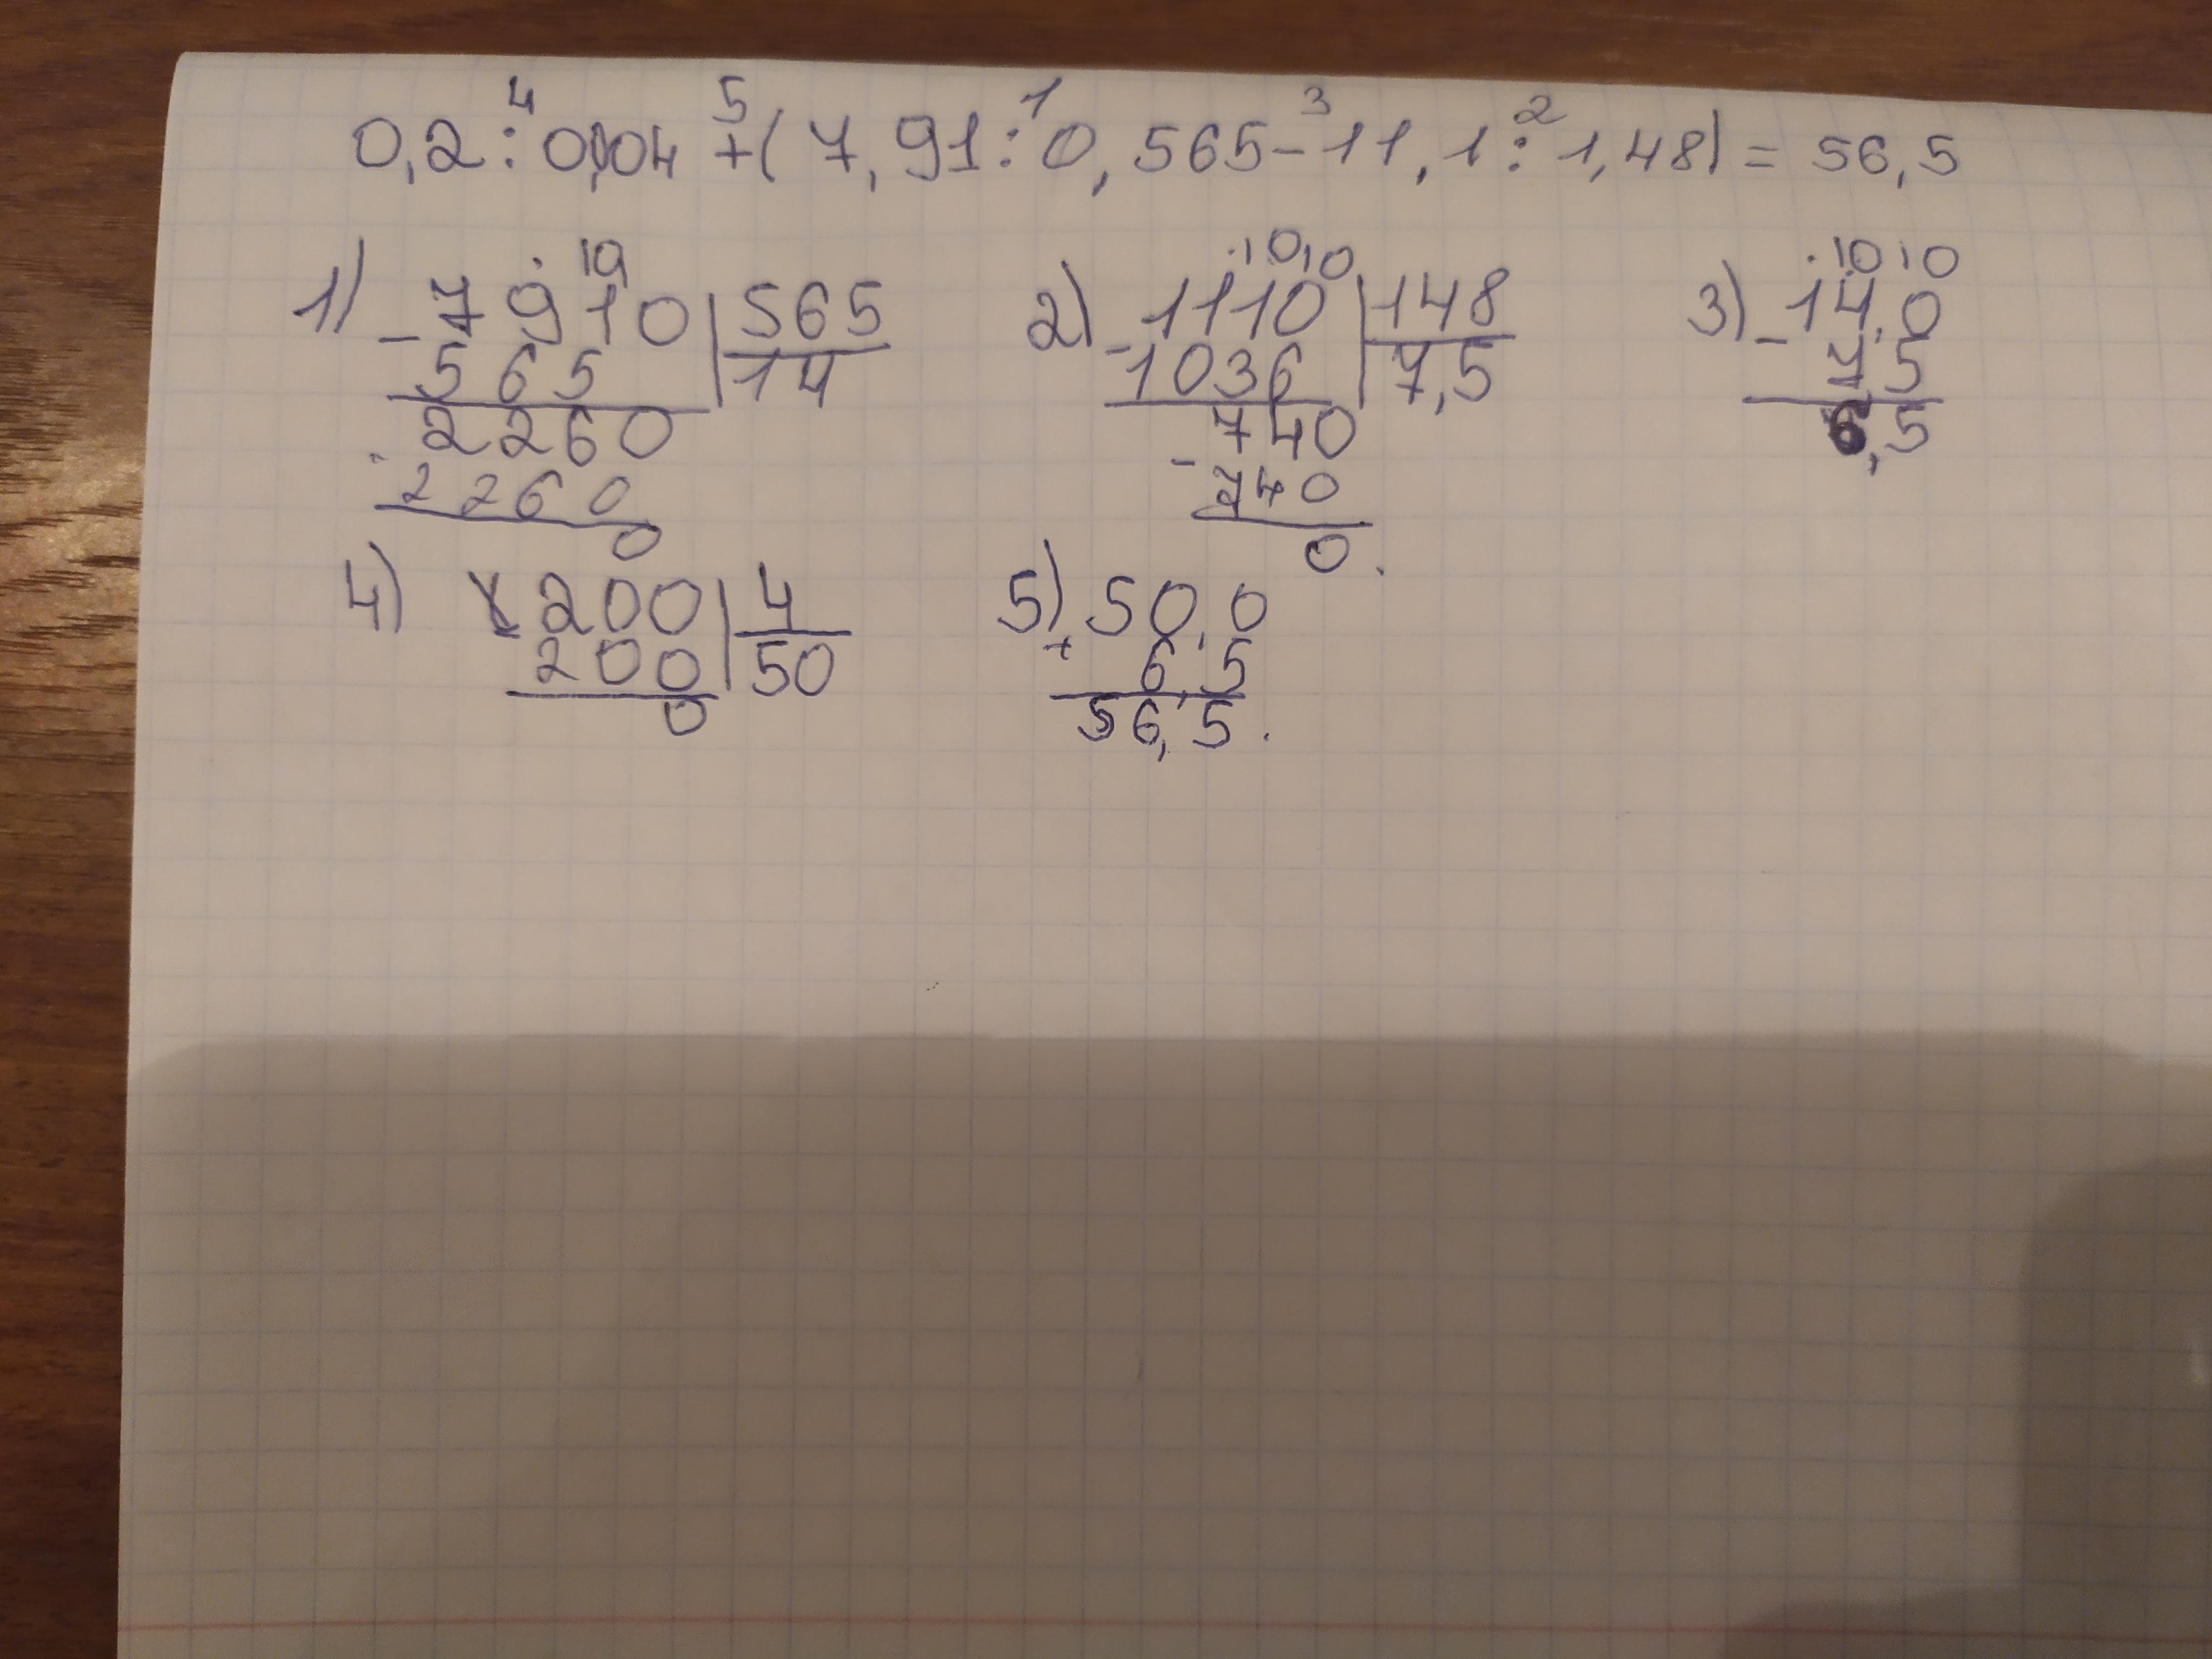 0,2 : 0,04 + ( 7,91 : 0,565 - 11,1 : 1,48) = 56,5
4 5 1 3 2
1) 2) 3)
10 10 10 10 10
- 7910 | 565 - 1110 | 148 - 14,0
565 | 14 1036 | 7,5 7,5
2260 740 6,5
- 2260 - 740
0 0.
4) 200 | 4 5) + 50,0
200 | 50 6,5
0 56,5.